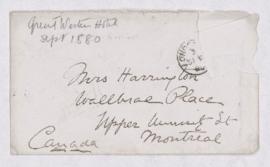 Great Western Hotel
Sept 1880
Mrs Harrington
Wallbrae Place
Upper University St
Montreal
Canada